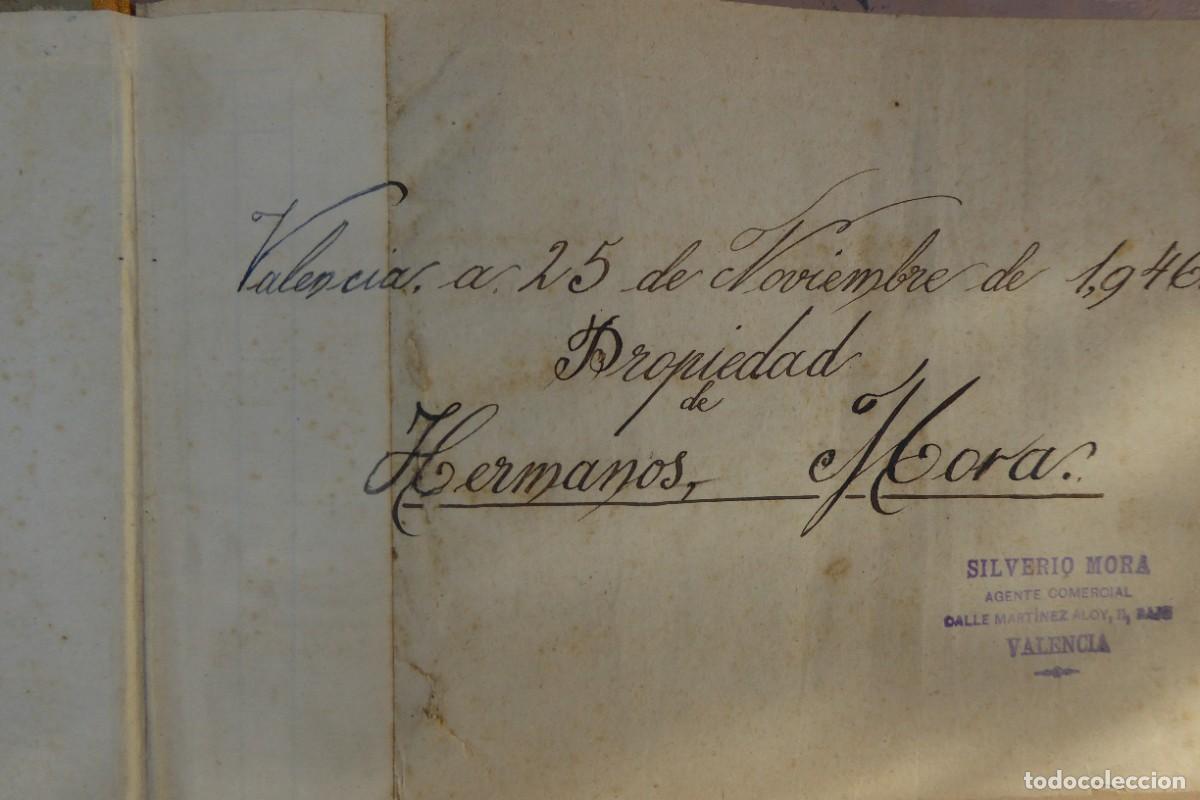 Valencia. a. 25 de Noviembre de 1,946.
Propiedad
de
Hermanos, Mora.
SILVERIO MORA
AGENTE COMERCIAL
CALLE MARTÍNEZ ALOY, BAJO
VALENCIA
todocoleccion